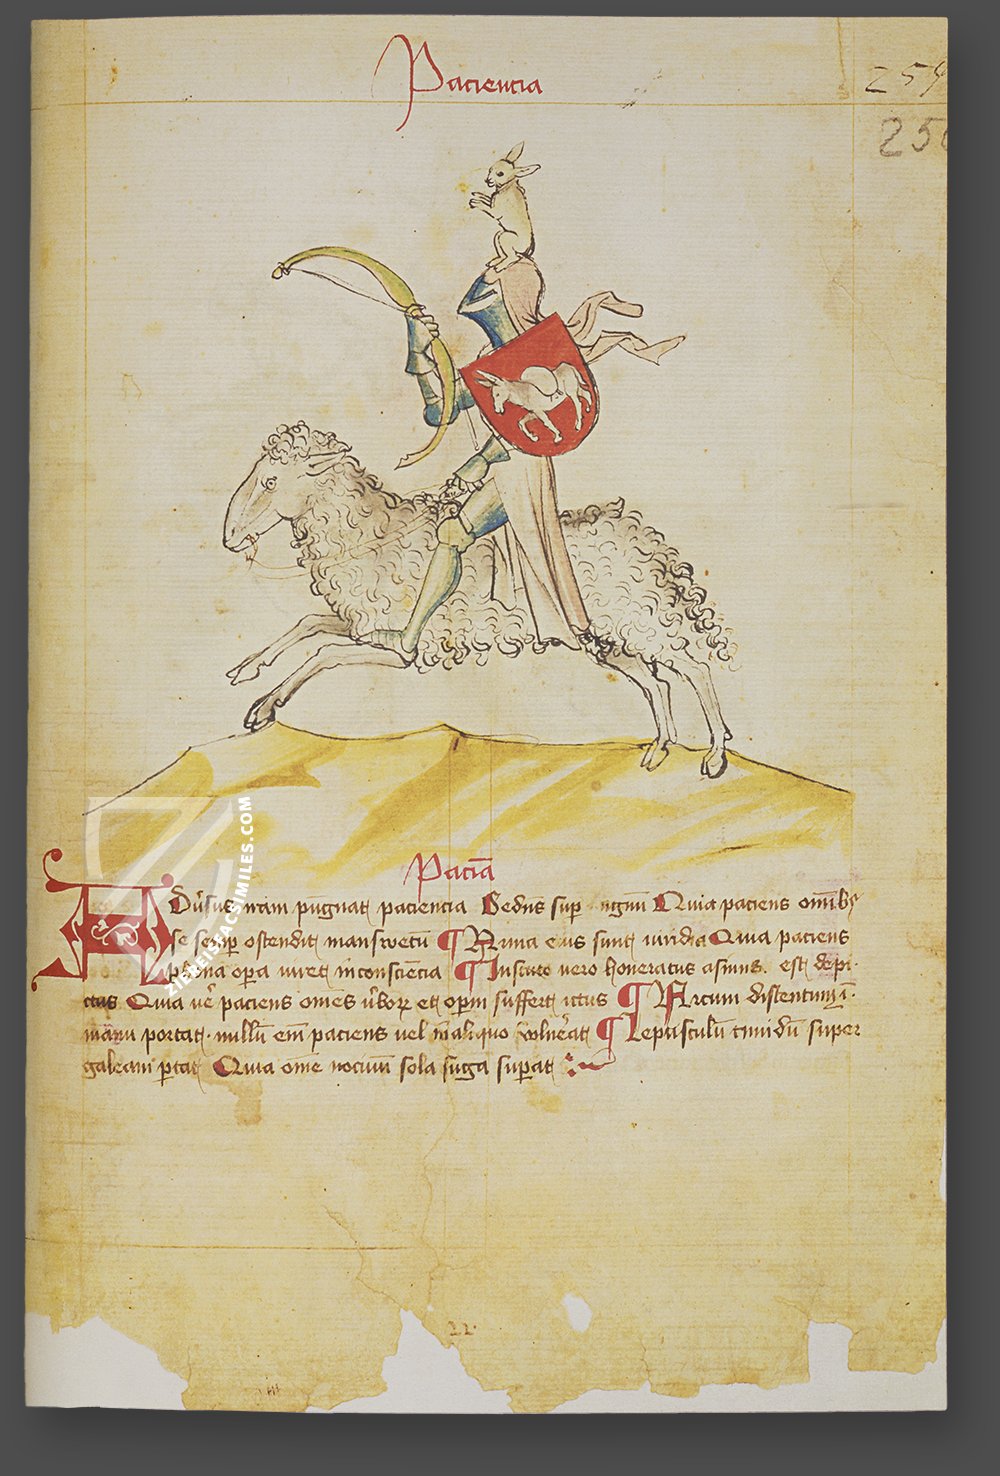 Paciencia
254
25
Pacia̅
Adũsus iram pugnat paciencia Sedens sup agnũ Quia paciens omĩbꝫ
se semp ostendit manswetũ ¶ Arma eius sunt viridia Quia paciens
opera vivet in consciencia ¶ In scuto vero honeratus asinus. est depi-
ctus Quia ue̅ paciens om̃es et suffert ictus ¶ Arcum distentum ĩ
manu portat. nullũ em̃ paciens vel aliquo ¶ Lepusculũ timidũ super
galeam ꝑtat Quia om̃e nocuũ sola fuga supat
22
ZIEREISFACSIMILES.COM